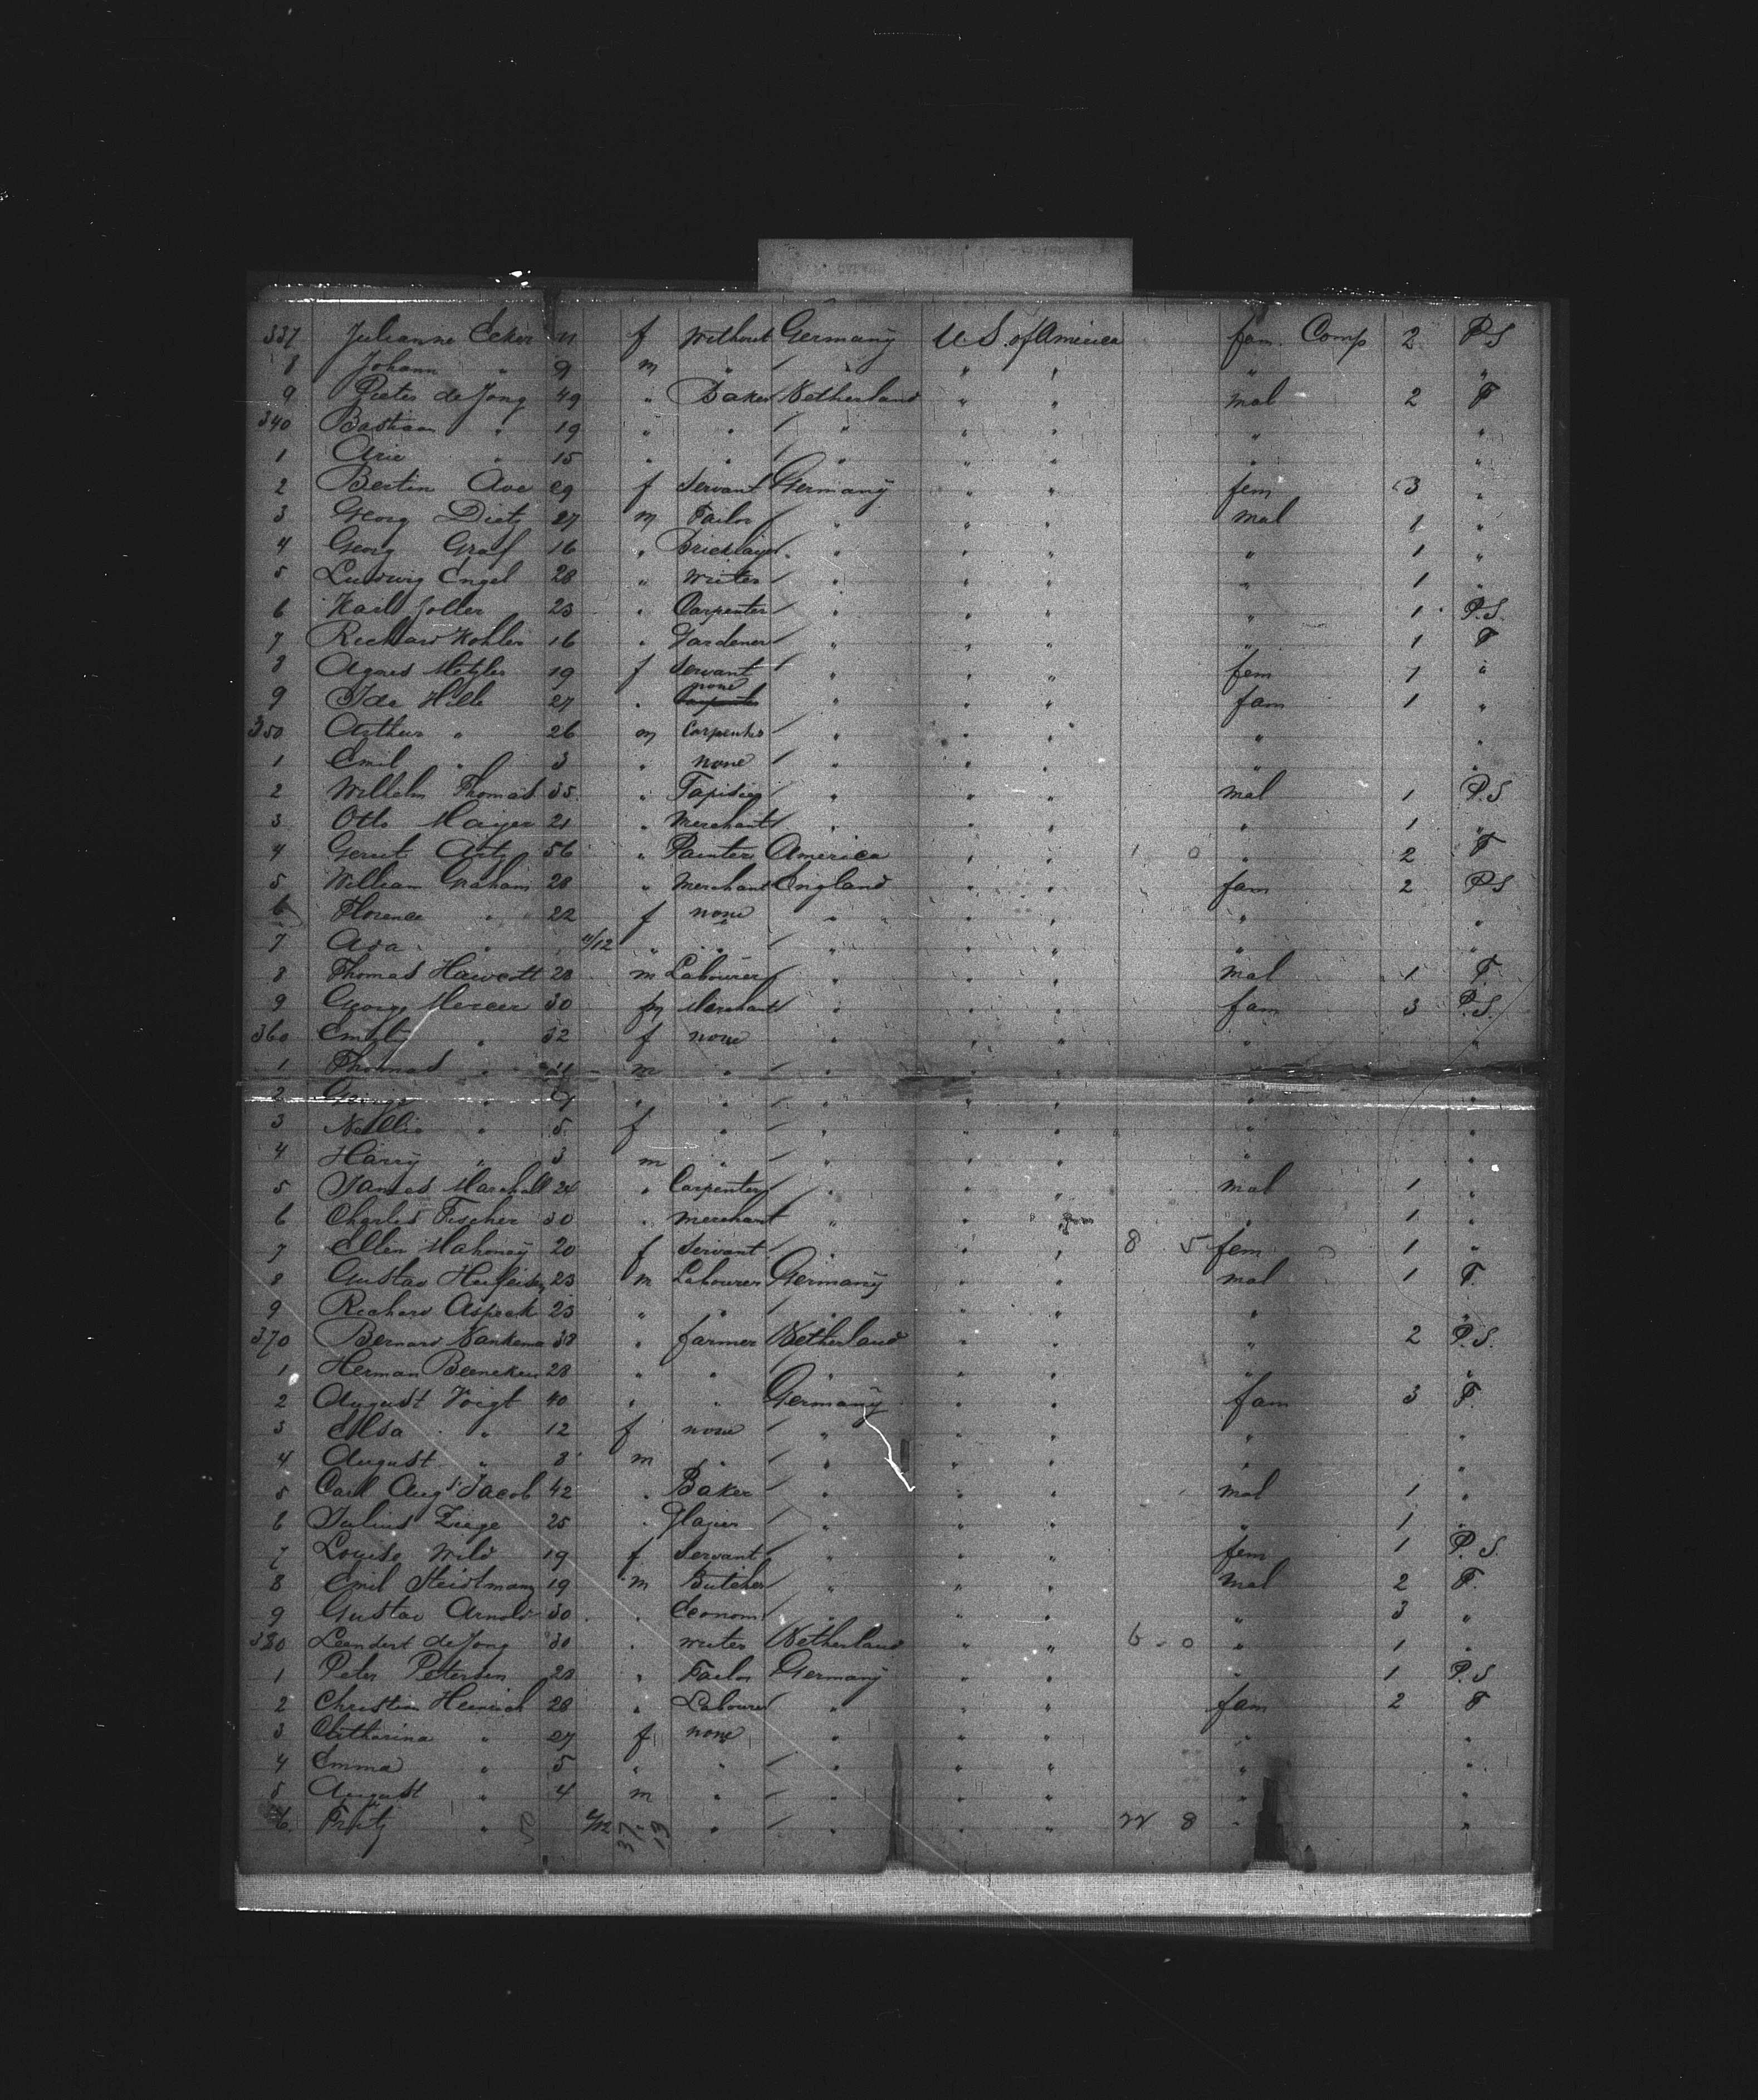 337 Julianne Ecker 11 f Without Germany U.S. of America fam. Comp 2 P.S
8 Johann " 9 m " " " " " "
9 Pieter de Jong 49 " Baker Netherland " " mal 2 F
340 Bastiaan " 19 " " " " " " "
1 Arie " 15 " " " " " " "
2 Bertin Ave 29 f Servant Germany " " fem 3 "
3 Georg Dietz 27 m Tailor " " " mal 1 "
4 Georg Graf 16 " Bricklayer " " " " 1 "
5 Ludwig Engel 28 " Writer " " " " 1 "
6 Karl Joller 23 " Carpenter " " " 1 P.S.
7 Richard Kohler 16 " Gardener " " " " 1 F
8 Agnes Metzler 19 f Servant " " " fem 1 "
9 Ida Hille 27 " none " " " fam 1 "
350 Arthur " 26 m Carpenter " " " " "
1 Emil " 3 " none " " " " "
2 Wilhelm Thomas 35 " " " " mal 1 P.S
3 Otto Mayer 21 " Merchant " " " " 1 "
4 Gerrit 56 " Painter America " " 1 0 " 2 F
5 William Graham 28 " Merchant England " " fam 2 P.S
6 Florence " 22 f none " " " " "
7 Ada " 11/12 " " " " " " "
8 Thomas Hawcott 28 m Labourer " " " mal 1 F.
9 George Mercer 30 m Merchant " " " fam 3 P.S.
360 Emily " 32 f none " " " " "
1 Thomas " 11 m " " " "
2 George " 9 " " " " " " "
3 Nellie " 5 f " " " " " "
4 Harry " 3 m " " " " " "
5 James Marshall 24 " Carpenter " " " mal 1 "
6 Charles Fischer 30 " merchant " " " " 1 "
7 Ellen Mahoney 20 f Servant " " " 8 5 fem 1 "
8 Gustav 23 m Labourer Germany " " mal 1 F.
9 Richard 23 " " " " " " "
370 Bernard Nankema 38 " farmer Netherland " " " 2 P.S.
1 Herman Beeneken 28 " " " " " " "
2 August Voigt 40 " " Germany " " fam 3 F.
3 Elsa " 12 f none " " " " "
4 August " 8 m " " " " " "
5 Carl Augt Jacob 42 " Baker " " " mal 1 "
6 Julius Ziege 25 " Glazier " " " " 1 "
7 Louise Wild 19 f Servant " " " fem 1 P.S.
8 Emil Heidtmann 19 m Butcher " " " mal 2 F.
9 Gustav Arnold 30 " Econom " " " " 3 "
380 Leendert de Jong 30 " writer Netherland " " 6 - 0 " 1 "
1 Peter Petersen 28 " Tailor Germany " " " 1 P.S
2 Christian Heinrich 28 " Labourer " " " fam 2 F
3 Catharina " 27 f none " " " " "
4 Emma " 5 " " " " " " "
5 August " 4 m " " " " " "
6 Fritz " /12 " " " " " 8 " "
37 13